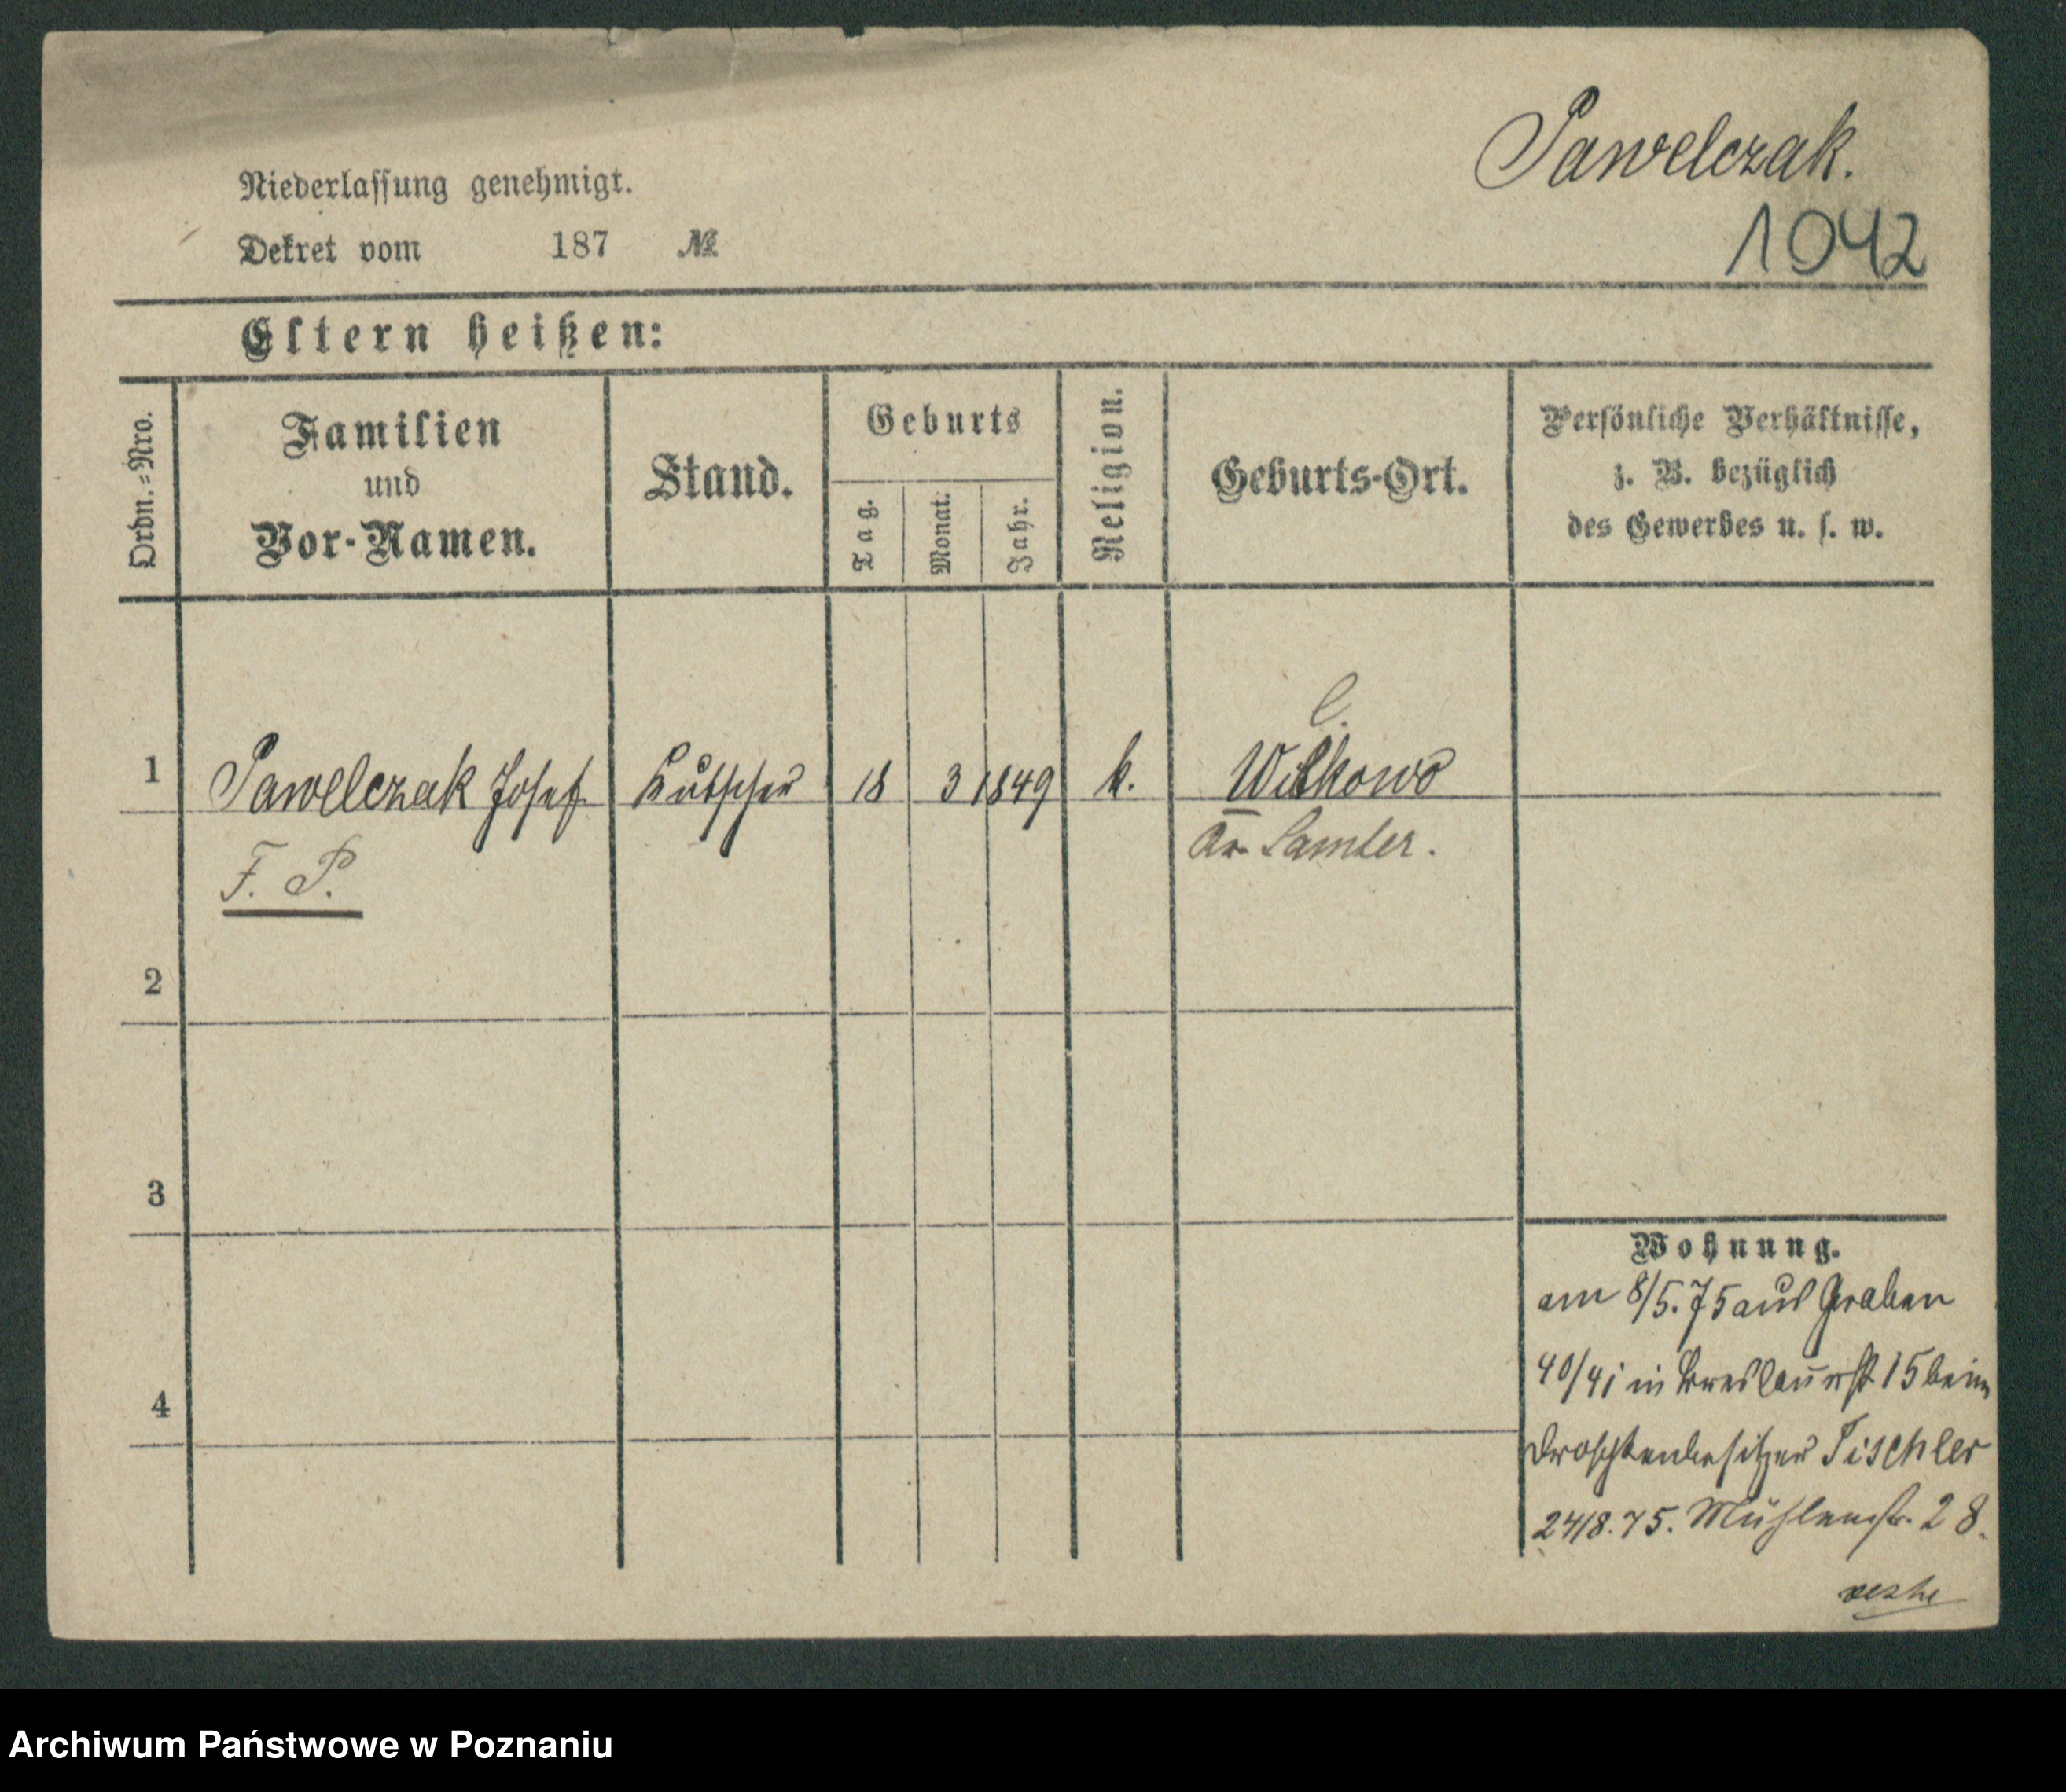 Pawelczak.
1042
Niederlassung genehmigt.
Dekret vom 187 №
Eltern heißen:
Ordn.=Nro.
Familien
und
Vor-Namen.
Stand.
Geburts
Tag.
Monat.
Jahr.
Religion.
Geburts-Ort.
Persönliche Verhältnisse,
z. B. bezüglich
des Gewerbes u. s. w.
1 Pawelczak Josef Kutscher 18 3 1849 k. Wilkowo
Kr. Samter.
F. P.
2
3
4
Wohnung.
am 8/5.75 aus Graben
40/41 in Breslauerst 15 beim
Droschkenbesitzer Tischler
24/8.75. Mühlenstr. 28.
Archiwum Państwowe w Poznaniu